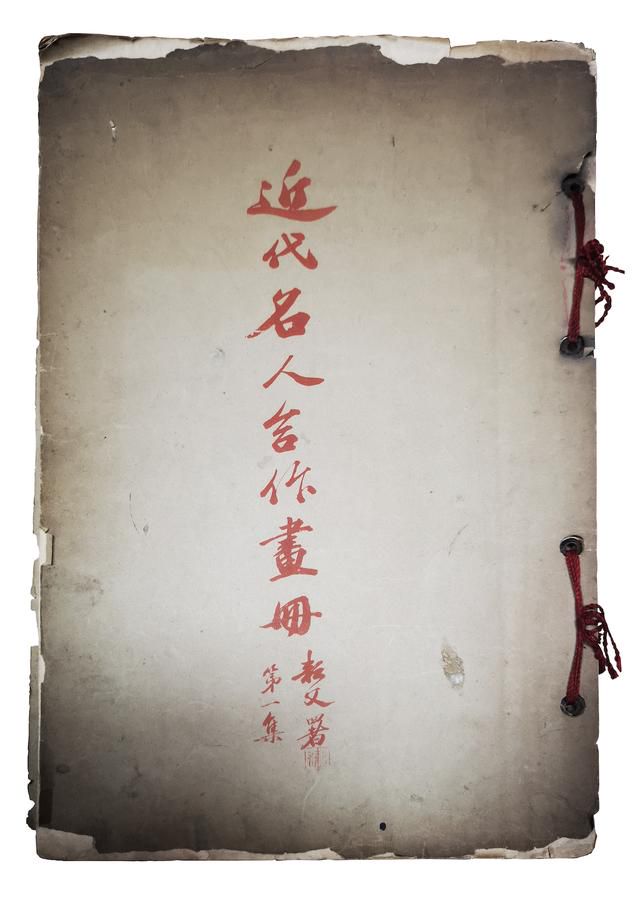 近代名人合作畫冊
父署
第一集